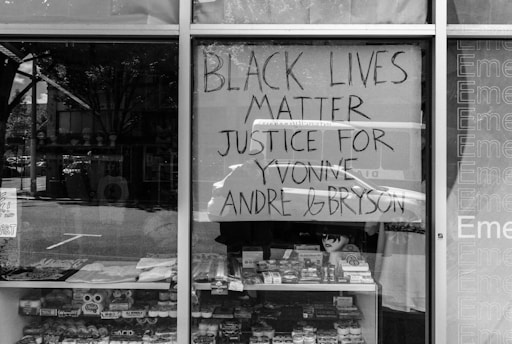 BLACK LIVES
MATTER
JUSTICE FOR
YVONNE
ANDRE & BRYSON
Eme
Eme
Eme
Eme
Eme
Eme
Eme
Eme